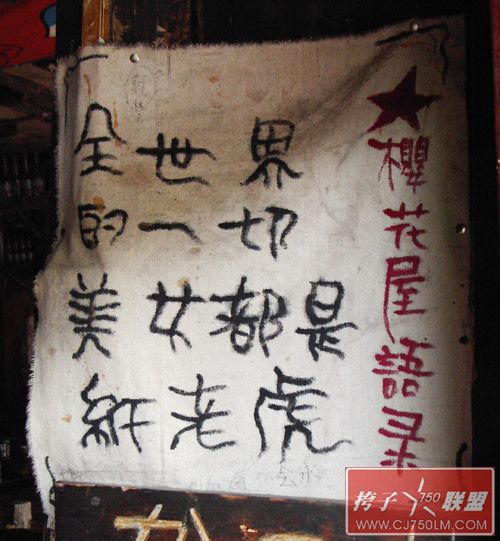 全世界
的一切
美女都是
纸老虎
★櫻花屋語录
挎子750联盟
WWW.CJ750LM.COM